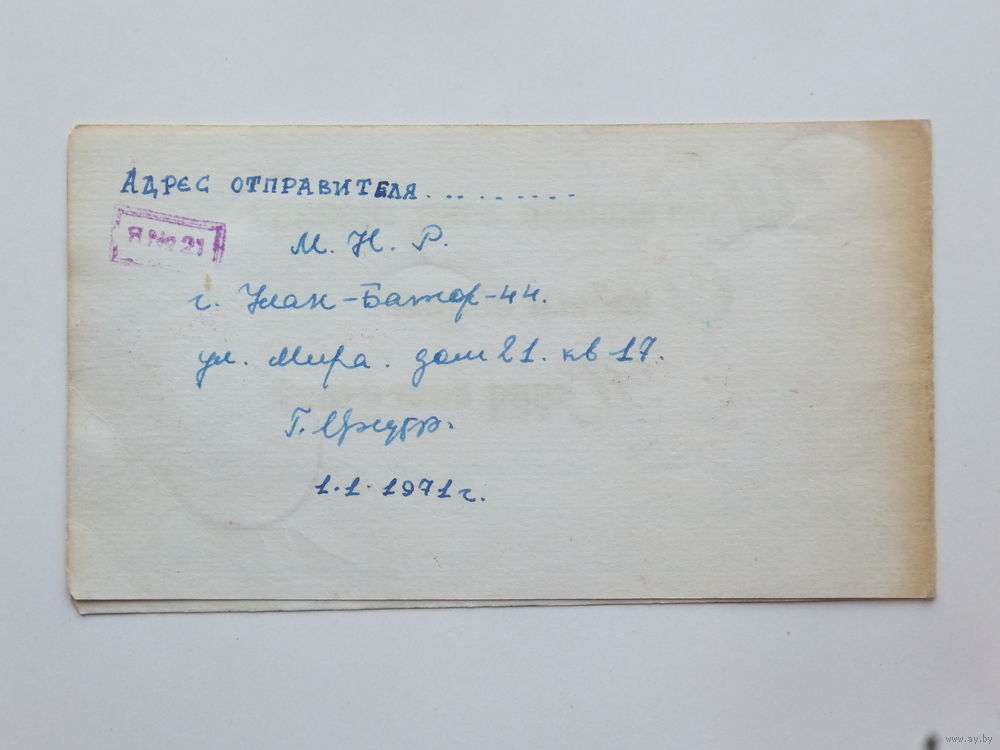 Адрес отправителя..........
Я № 21
М. Н. Р.
г. Улан-Батор-44.
ул. Мира. дом 21. кв 17.
Г.
1.1.1971 г.
www.ay.by